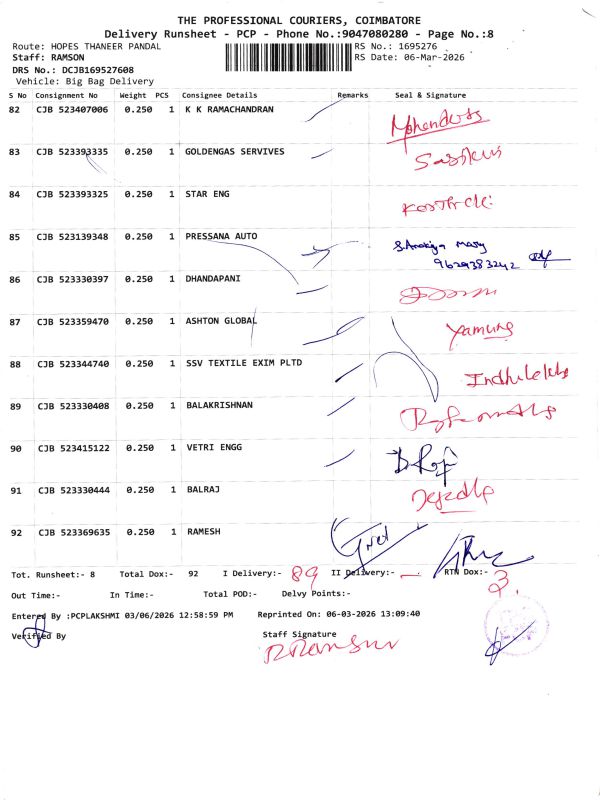 THE PROFESSIONAL COURIERS, COIMBATORE
Delivery Runsheet - PCP - Phone No.:9047080280 - Page No.:8
Route: HOPES THANEER PANDAL RS No.: 1695276
Staff: RAMSON RS Date: 06-Mar-2026
DRS No.: DCJB169527608
Vehicle: Big Bag Delivery
S No Consignment No Weight PCS Consignee Details Remarks Seal & Signature
82 CJB 523407006 0.250 1 K K RAMACHANDRAN
83 CJB 523393335 0.250 1 GOLDENGAS SERVIVES
84 CJB 523393325 0.250 1 STAR ENG
85 CJB 523139348 0.250 1 PRESSANA AUTO S. Arokiya Mary
9629383242
86 CJB 523330397 0.250 1 DHANDAPANI
87 CJB 523359470 0.250 1 ASHTON GLOBAL Yamuna
88 CJB 523344740 0.250 1 SSV TEXTILE EXIM PLTD
89 CJB 523330408 0.250 1 BALAKRISHNAN
90 CJB 523415122 0.250 1 VETRI ENGG
91 CJB 523330444 0.250 1 BALRAJ
92 CJB 523369635 0.250 1 RAMESH
Tot. Runsheet:- 8 Total Dox:- 92 I Delivery:- 89 II Delivery:- — RTN Dox:- 3.
Out Time:- In Time:- Total POD:- Delvy Points:-
Entered By :PCPLAKSHMI 03/06/2026 12:58:59 PM Reprinted On: 06-03-2026 13:09:40
Verified By Staff Signature